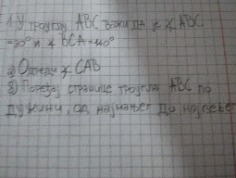 1. У троуглу ABC важи да је ∢ABC
=30° и ∢ BCA=40°
а) Одреди ∢ CAB
б) Поређај странице троугла ABC по
дужини, од најмање до највеће